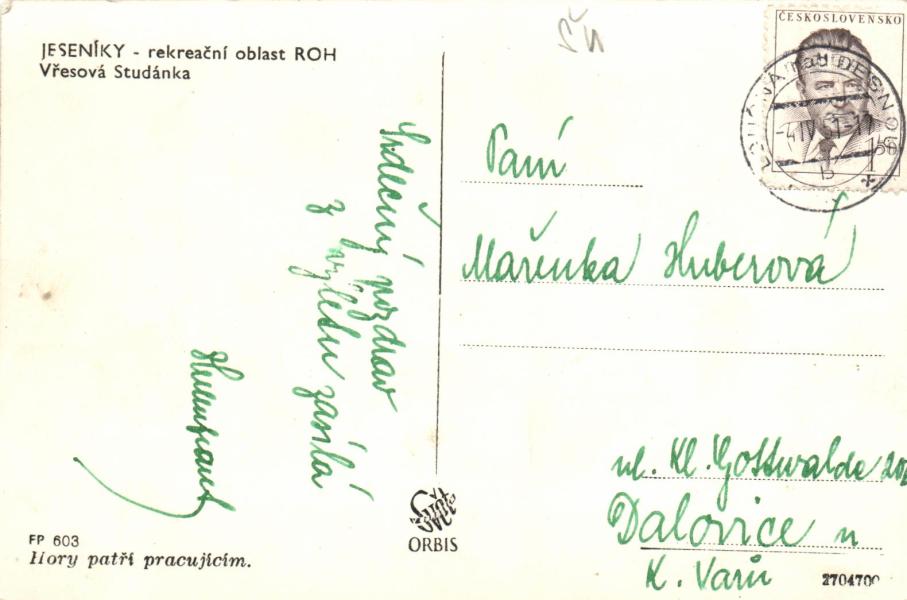 JESENÍKY - rekreační oblast ROH
Vřesová Studánka
Srdečný pozdrav
z výletu zasílá
FP 603
Hory patří pracujícím.
ORBIS
ČESKOSLOVENSKO
LOUČNÁ nad DESNOU
-4.IV.51-17
b
Paní
Mařenka Huberová
ul. Kl. Gottwalda
Dalovice u
K. Varů
2704700